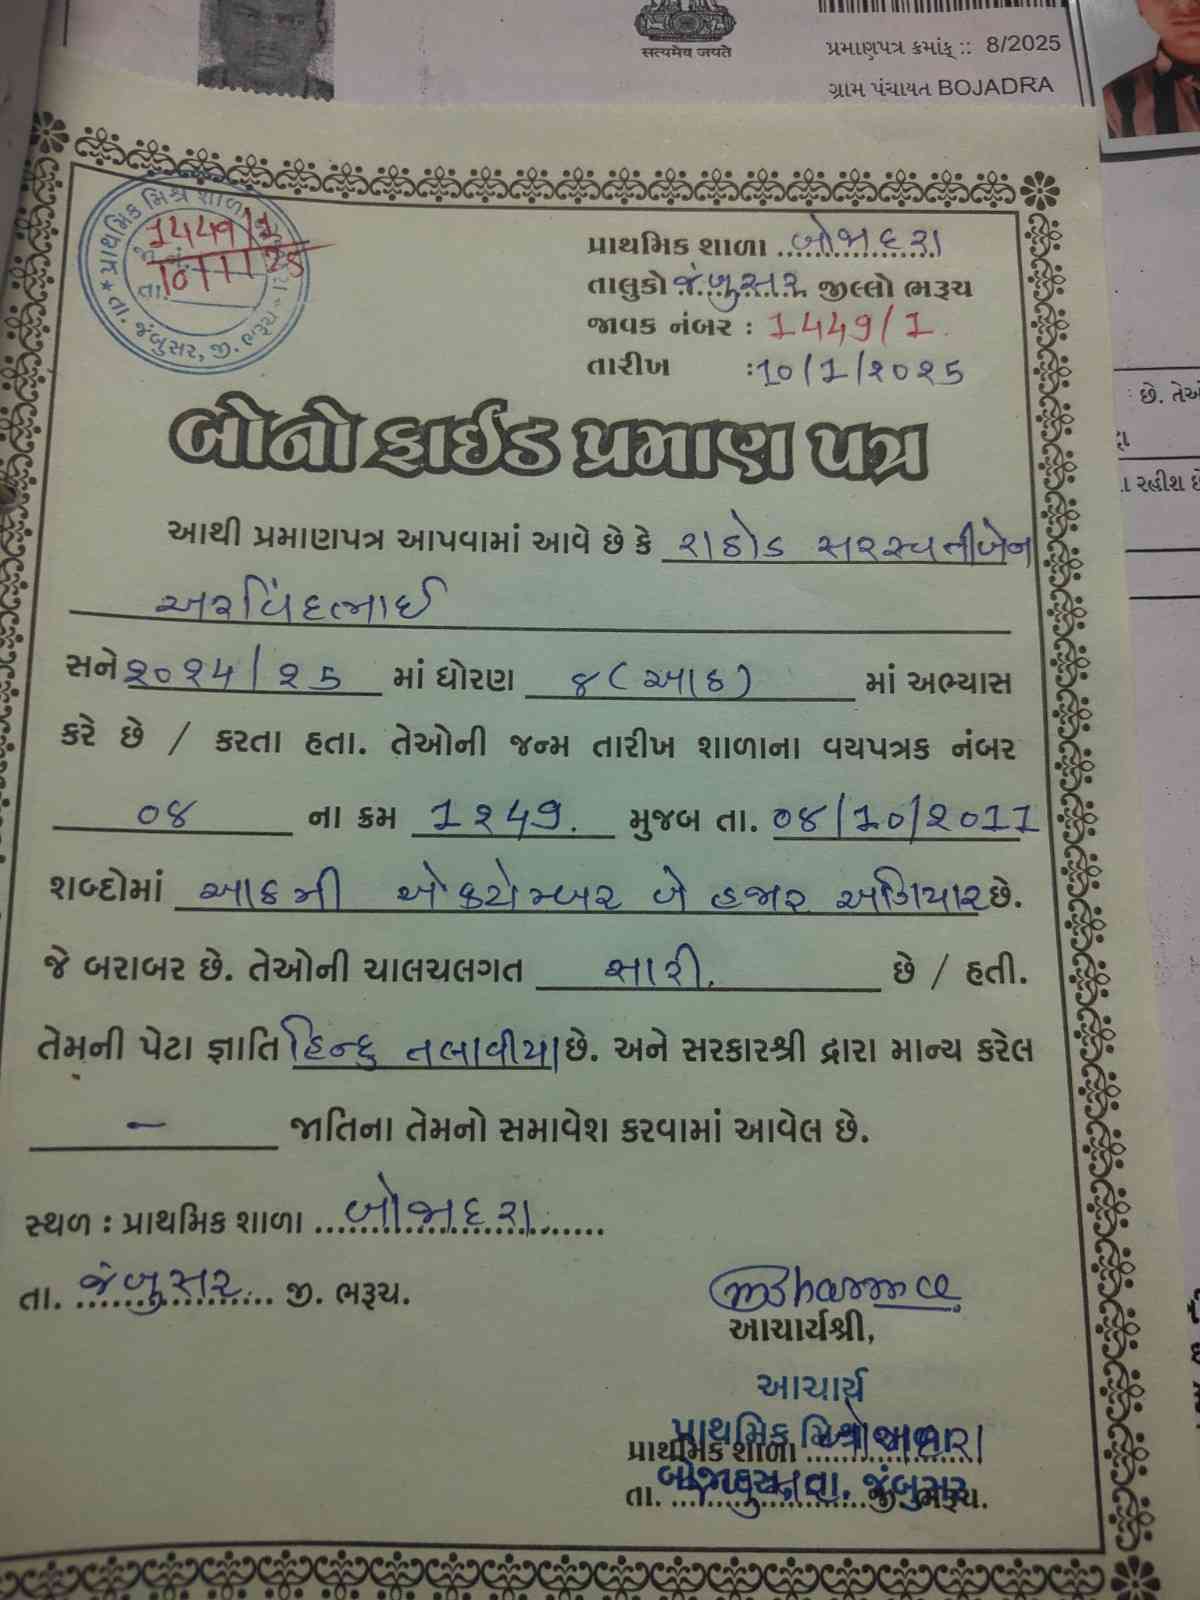 सत्यमेव जयते
પ્રમાણપત્ર ક્રમાંક :: 8/2025
ગ્રામ પંચાયત BOJADRA
પ્રાથમિક મિશ્ર શાળા
1449/1
10/1/25
તા. જંબુસર, જી. ભરૂચ
પ્રાથમિક શાળા બોજાદરા
તાલુકો જંબુસર જીલ્લો ભરૂચ
જાવક નંબર : 1449/1
તારીખ :૧૦/1/૨૦૨૫
બોનોફાઈડ પ્રમાણ પત્ર
આથી પ્રમાણપત્ર આપવામાં આવે છે કે રાઠોડ સરસ્વતીબેન
અરવિંદભાઈ
સને ૨૦૨૪/૨૫ માં ધોરણ ૮ (આઠ) માં અભ્યાસ
કરે છે / કરતા હતા. તેઓની જન્મ તારીખ શાળાના વયપત્રક નંબર
૦૪ ના ક્રમ 1૨49. મુજબ તા. ૦૮/10/૨૦11
શબ્દોમાં આઠમી ઓક્ટોમ્બર બે હજાર અગિયાર છે.
જે બરાબર છે. તેઓની ચાલચલગત સારી. છે / હતી.
તેમની પેટા જ્ઞાતિ હિન્દુ તલાવીયા છે. અને સરકારશ્રી દ્વારા માન્ય કરેલ
- જાતિના તેમનો સમાવેશ કરવામાં આવેલ છે.
સ્થળ : પ્રાથમિક શાળા બોજાદરા
તા. જંબુસર જી. ભરૂચ.
આચાર્યશ્રી,
આચાર્ય
પ્રાથમિક મિશ્ર શાળા
પ્રાથમિક શાળા
બોજાદરા, તા. જંબુસર
તા. જી. ભરૂચ.
છે. તેઓ
રહીશ છે